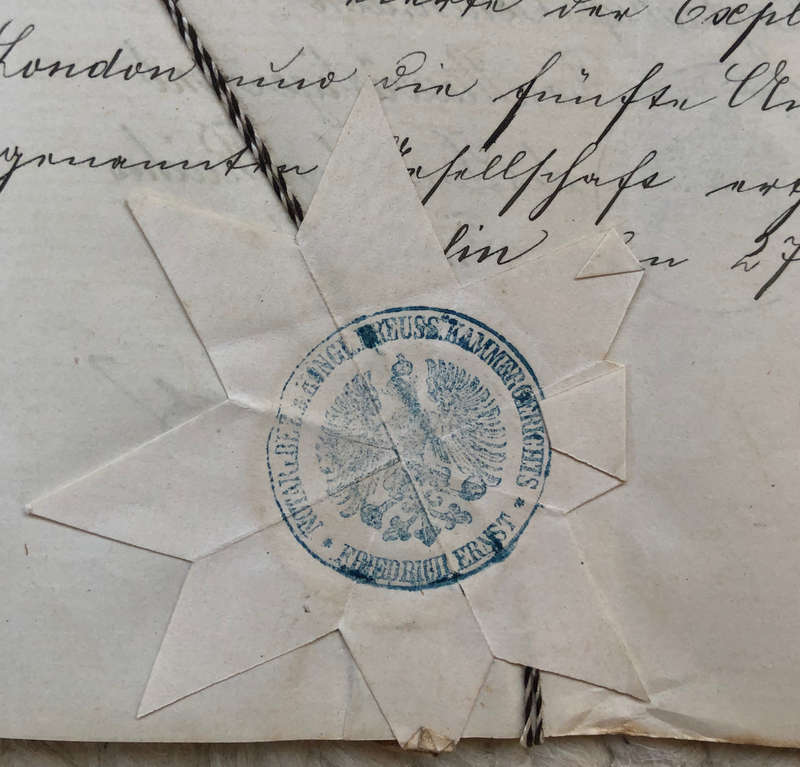 der Expl
London und die fünfte An
genannten Gesellschaft er
lin den 27
NOTAR I. BEZ. D. KÖNGL. PREUSS. KAMMERGERICHTS
* FRIEDRICH ERNST *